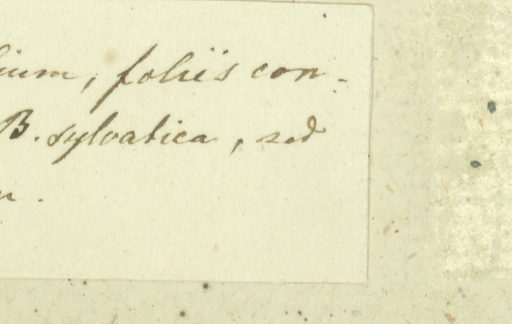 foliis con-
B. sylvatica, sed